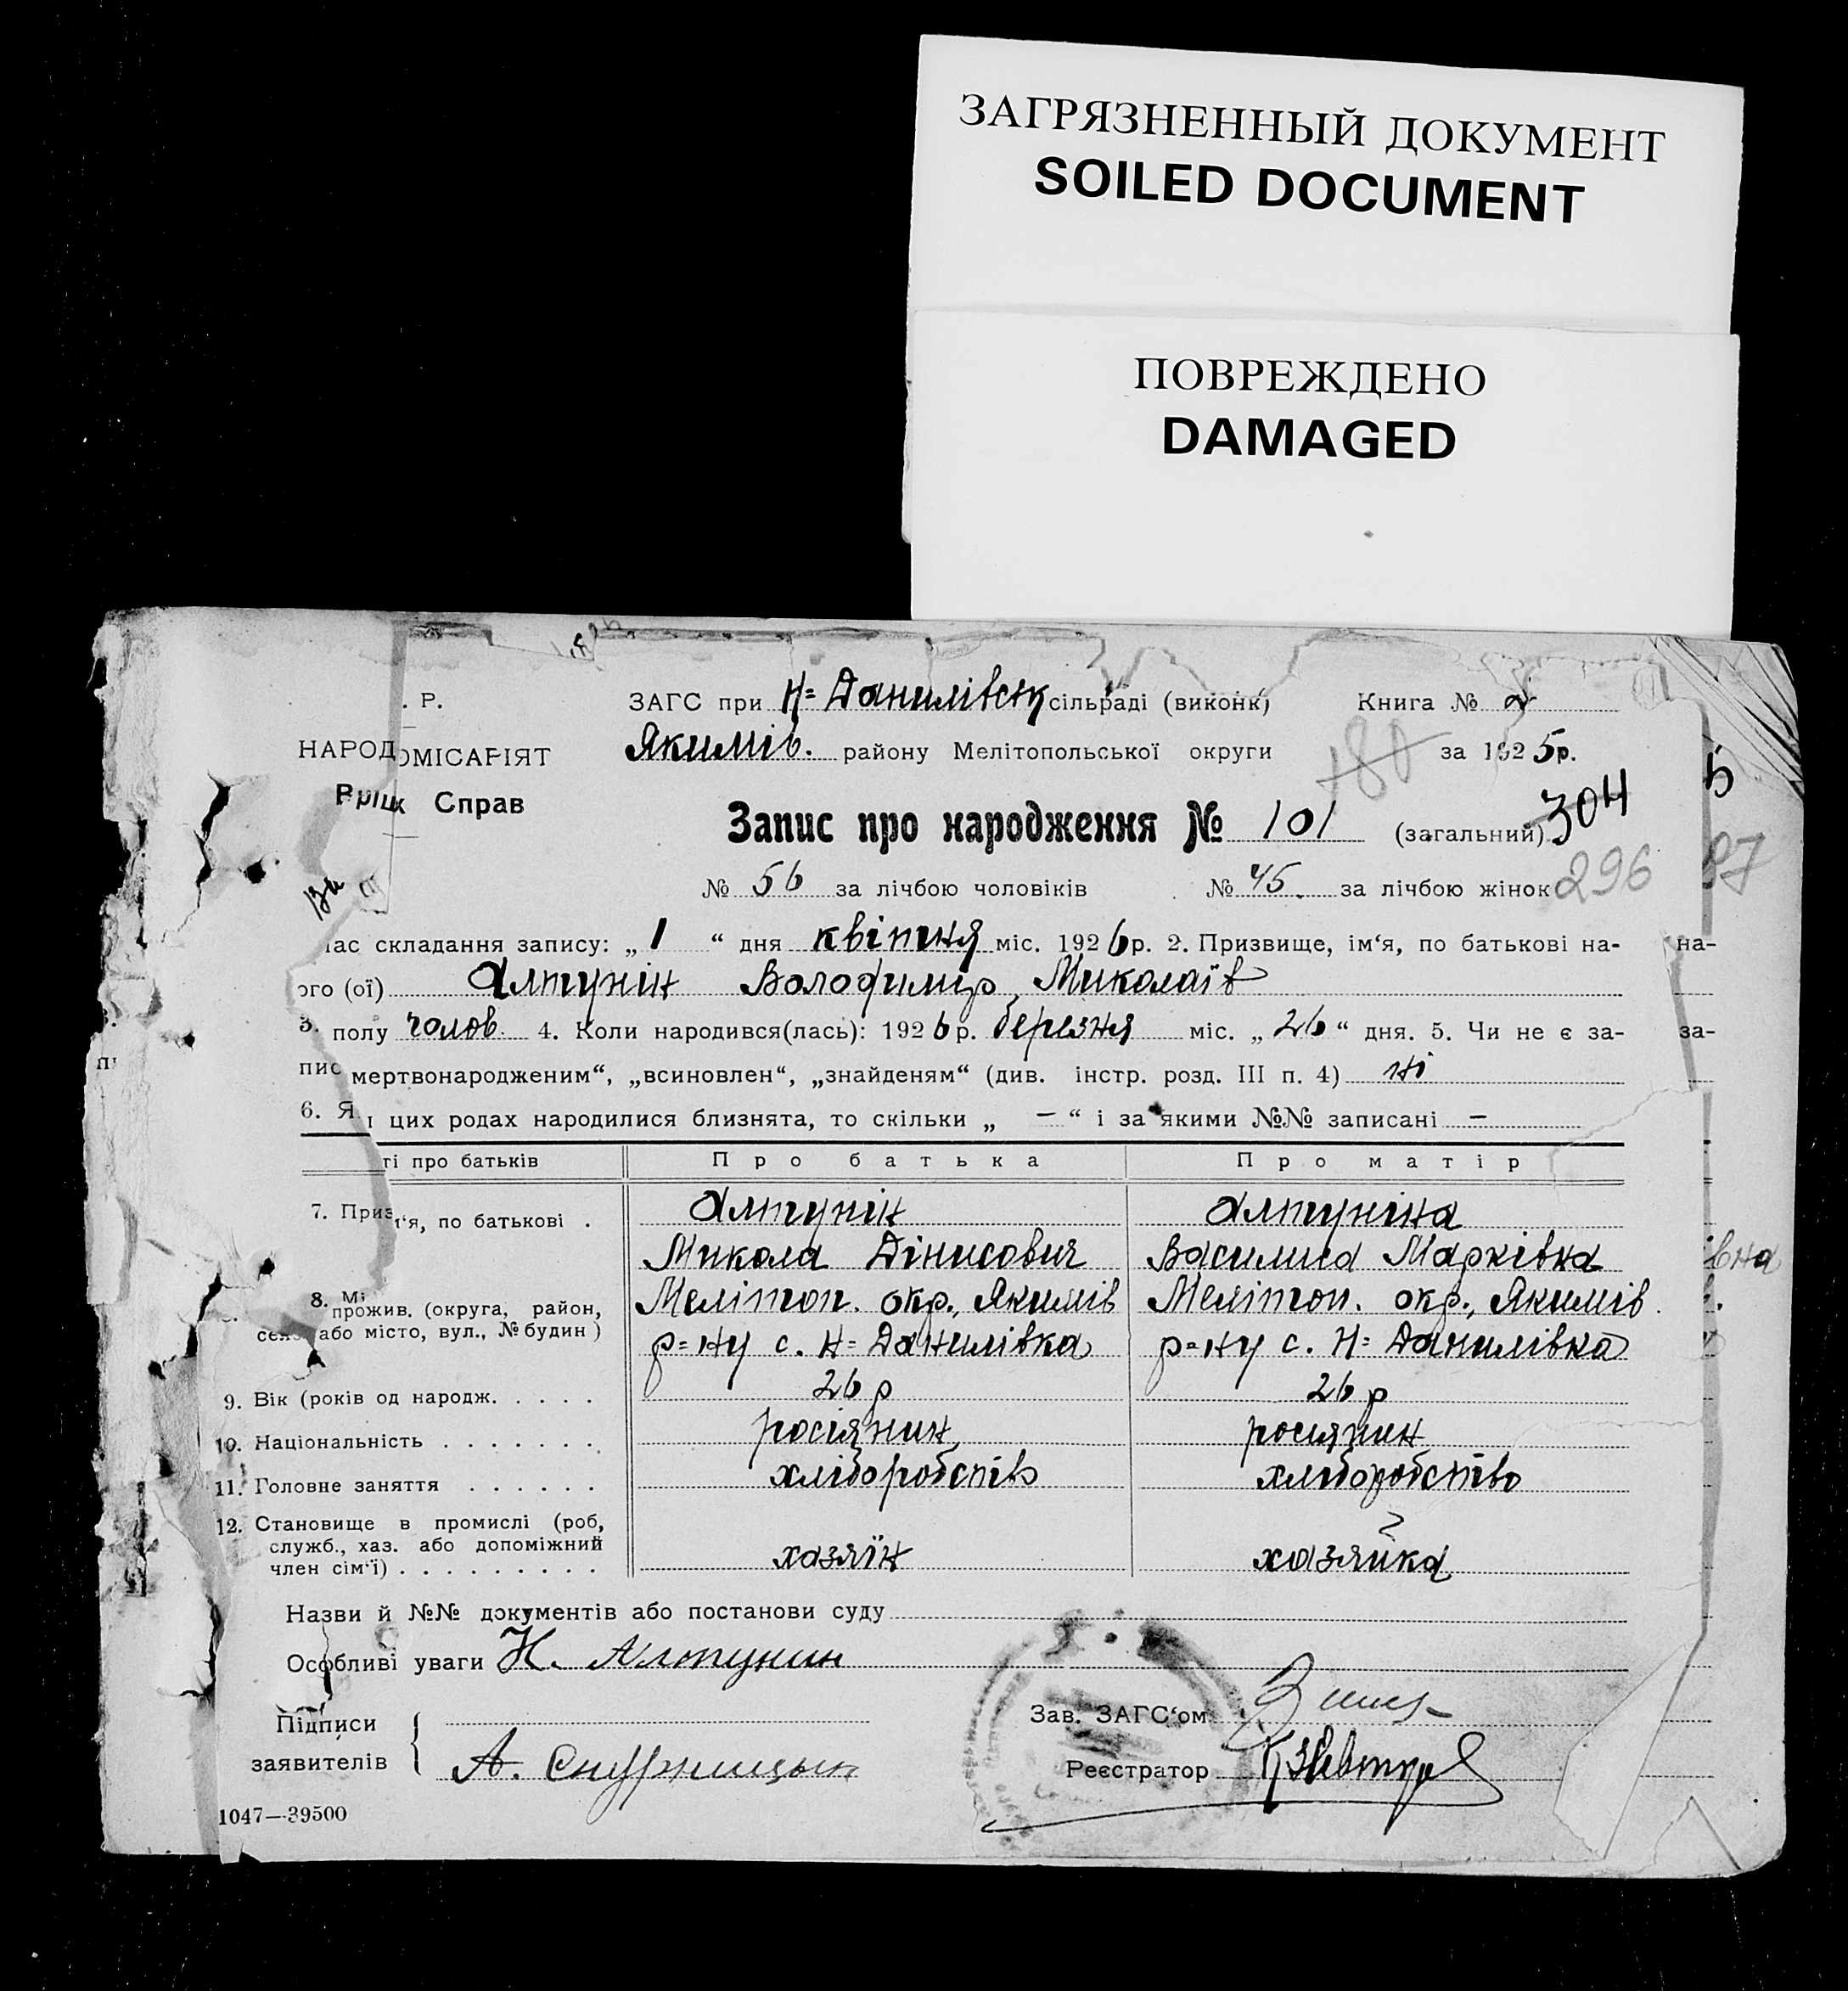 ЗАГРЯЗНЕННЫЙ ДОКУМЕНТ
SOILED DOCUMENT
ПОВРЕЖДЕНО
DAMAGED
. Р. ЗАГС при Н=Данилівськ сільраді (виконк) Книга № 2
НАРОД ОМІСАРІЯТ Якимів. району Мелітопольської округи 180 за 1925р.
Вріш Справ
Запис про народження № 101 (загальний) 304
№ 56 за лічбою чоловіків № 45. за лічбою жінок 296
час складання запису: „ 1 “ дня квітня міс. 1926р. 2. Призвище, ім‘я, по батькові на- на-
ого (ої) Алтунін Володимир Миколаїв
3. полу чолов. 4. Коли народився(лась): 1926р. березня міс. „ 26 “ дня. 5. Чи не є за- за-
пис мертвонародженим“, „всиновлен“, „знайденям“ (див. інстр. розд. III п. 4) ні
6. Я и цих родах народилися близнята, то скільки „ — “ і за якими №№ записані —
ті про батьків Про батька Про матір
7. Приз м‘я, по батькові . Алтунін Алтуніна
Микола Дінисович Василиса Марківна івна
8. Мі прожив. (округа, район, Мелітоп. окр., Якимів Мелітоп. окр., Якимів.
село або місто, вул., № будин) р=ну с. Н=Данилівка р=ну с. Н=Данилівка
9. Вік (років од народж. . . . . 26 р 26 р
10. Національність . . . . . . . росіянин росіянин
11. Головне заняття . . . . . . хліборобство хліборобство
12. Становище в промислі (роб,
служб., хаз. або допоміжний
член сім‘ї) . . . . . . . . . хазяїн хазяйка
Назви й №№ документів або постанови суду
Особливі уваги Н. Алтунин
Підписи
заявителів
Зав. ЗАГС‘ом
А.
Реєстратор
1047—39500